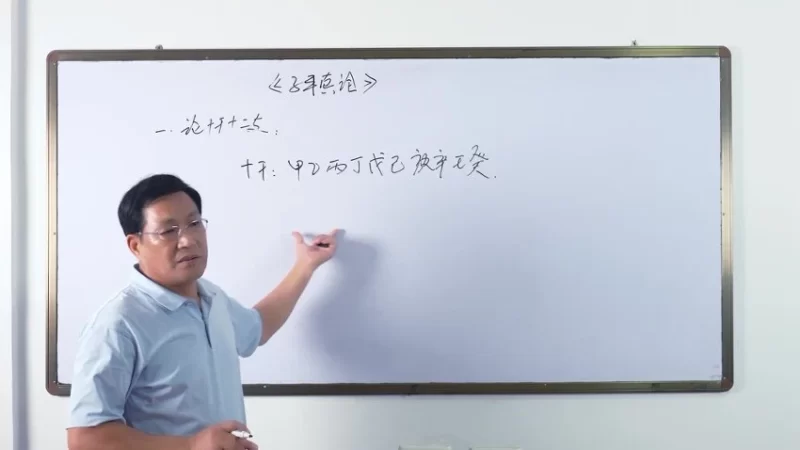 《子平真论》
一.论十干十二支:
十干:甲乙丙丁戊己庚辛壬癸.